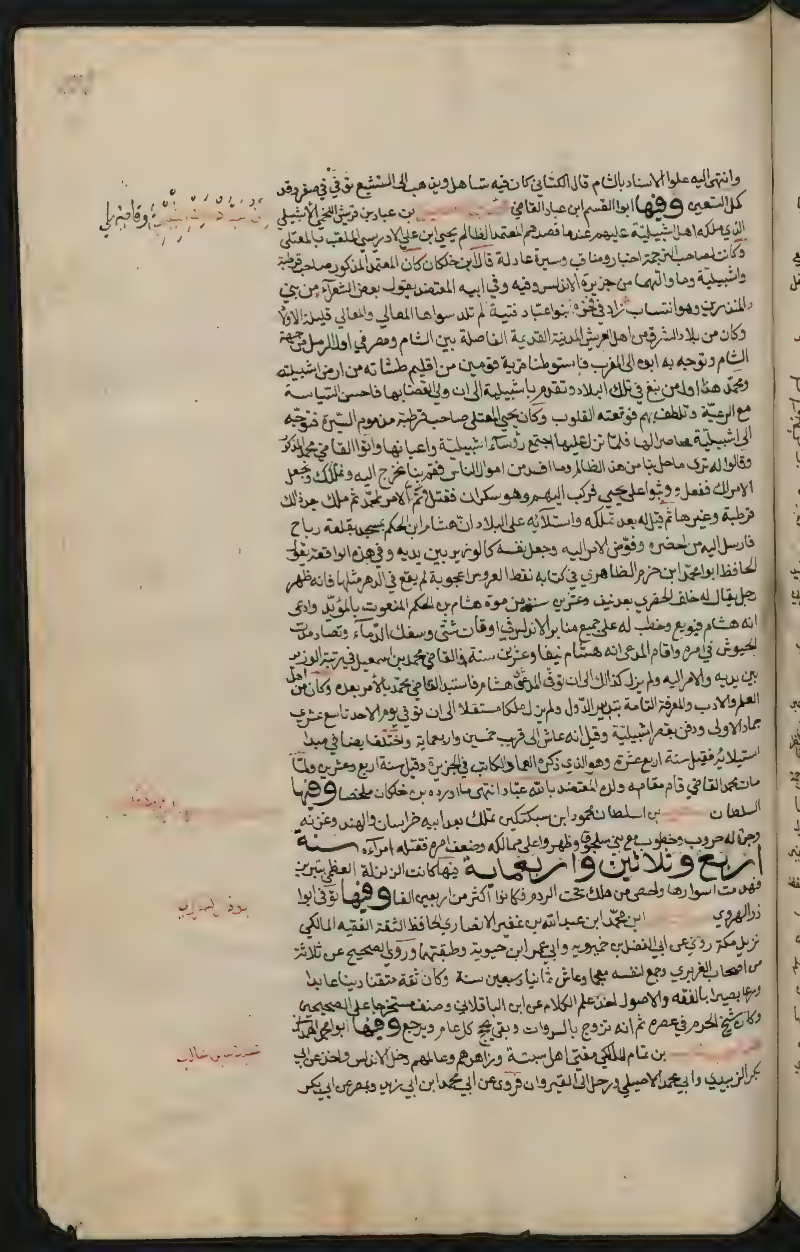 وانتهى اليه علو الاسناد بالشام قال الكتاني كان فيه تساهل ويذهب الى التشيع توفي في صفر وقد
كمل التسعين وفيها ابوا القسم ابن عباد القاضي بن عباد بن قريش اللخمي الاشبيلي
الذي ملكه اهل اشبيلية عليهم عندما قصدهم المعتمد الظالم يحيى ابن علي الادريسي الملقب بالمعتلي
وكانت لصاحب الترجمة اخبار ومناقب وسيرة عادلة قال ابن خلكان كان المعتمد المذكور صاحب قرطبة
واشبيلية وما والتهما من جزيرة الاندلس وفيه وفي ابيه المعتضد يقول بعض الشعراء من بني
المنذرين وهو انتساب زاد في فخره بنوا عباد فتية لم تلد سواها المعالي والمعالي قليلة الاولاد
وكان من بلاد الشرق من اهل العريش المدينة القديمة الفاصلة بين الشام ومصر في اول الرمل من جهة
الشام وتوجه به ابوه الى المغرب فاستوطنا قرية تومين من اقليم طشانه من ارض اشبيلية
ومحمد هذا اول من نبغ في تلك البلاد وتقدم باشبيلية الى ان ولي القضا بها فاحسن السياسة
مع الرعية وتلطف بهم فرمقته القلوب وكان يحيى المعتلي صاحب قرطبة مذموم السيرة فتوجه
الى اشبيلية محاصرا لها فلما نزل عليها اجتمع رؤساء اشبيلية واعيانها واتوا القاضي محمد المذكور
وقالوا له ترى ما حل بنا من هذا الظالم وما افسد من اموال الناس فقم بنا نخرج اليه ونملكك ونجعل
الامر اليك ففعل ووثبوا على يحيى فركب اليهم وهو سكران فقتل وتم الامر لمحمد ثم ملك بعد ذلك
قرطبة وغيرها ثم قيل له بعد تملكه واستلائه على البلاد ان هشام ابن الحكم بمسجد بقلعة رباح
فارسل اليه من احضره وفوض الامر اليه وجعل نفسه كالوزير بين يديه وفي هذه الواقعة يقول
الحافظ ابوا محمد ابن حزم الظاهري في كتابه نقط العروس اعجوبة لم يقع في الدهر مثلها فانه ظهر
رجل يقال له خلف الحضري بعد نيف وعشرين سنة من موت هشام بن الحكم المنعوت بالمؤيد وادعى
انه هشام فبويع وخطب له على جميع منابر الاندلس في اوقات شتى وسفك الدماء وتصادمت
الجيوش في امره واقام المدعى انه هشام نيفا وعشرين سنة والقاضي محمد بن اسمعيل في رتبة الوزير
بين يديه والامر اليه ولم يزل كذلك الى ان توفي المدعى هشام فاستبد القاضي محمد بالامر بعده وكان من اهل
العلم والادب والمعرفة التامة بتدبير الدول ولم يزل ملكا مستقلا الى ان توفي يوم الاحد تاسع عشري
جماد الاولى ودفن بقصر اشبيلية وقيل انه عاش الى قريب خمسين واربعماية واختلف ايضا في مبدا
استيلائه فقيل سنة اربع عشرة وهو الذي ذكره العماد الكاتب في الخريدة وقيل سنة اربع وعشرين ولما
مات محمد القاضي قام مقامه ولده المعتضد بالله عباد انتهى ما اورده بن خلكان ملخصا وفيها
السلطان بن السلطان محمود ابن سبكتكين تملك بعد ابيه خراسان والهند وغزنه
وجرت له حروب وخطوب مع بني سلجوق وظهروا على ممالكه وضعف امره فقتله امراءه سنة
اربع وثلاثين واربعماية فيها كانت الزلزلة العظمى بتبريز
فهدمت اسوارها واحصي من هلك تحت الردم فكانوا اكثر من اربعين الفا وفيها توفي ابوا
ذر الهروي ابن محمد ابن عبد الله بن غفير الانصاري الحافظ الثقة الفقيه المالكي
نزيل مكة روى عن ابي الفضل بن خميرويه وابي عمر ابن حيوية وطبقتهما وروى الصحيح عن ثلاثة
من اصحاب الفربري وجمع لنفسه معجما وعاش ثمانيا وسبعين سنة وكان ثقة متقنا دينا عابدا
ورعا بصيرا بالفقه والاصول اخذ علم الكلام عن ابن الباقلاني وصنف مستخرجا على الصحيحين
وكان شيخ الحرم في عصره ثم انه تزوج بالسروات وبقي يحج كل عام ويرجع وفيها ابوا محمد الهمداني
بن تمام المالكي مفتي اهل سبتة وزاهدهم وعالمهم دخل الاندلس واخذ عن ابي
بكر الزبيدي وابي محمد الاصيلي ورحل الى القيروان فروى عن ابي محمد ابن ابي زيد وبمصر عن ابي بكر